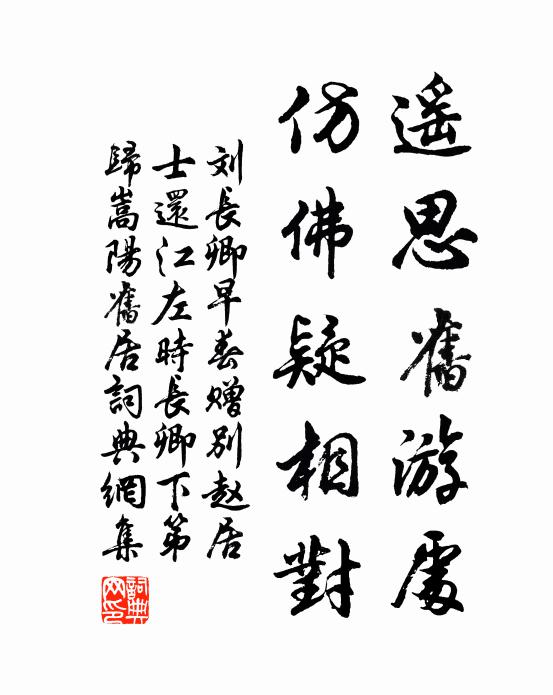 遥思舊游處
仿佛疑相對
刘長卿早春赠別赵居
士還江左時長卿下第
歸嵩陽舊居詞典網集
詞典網印